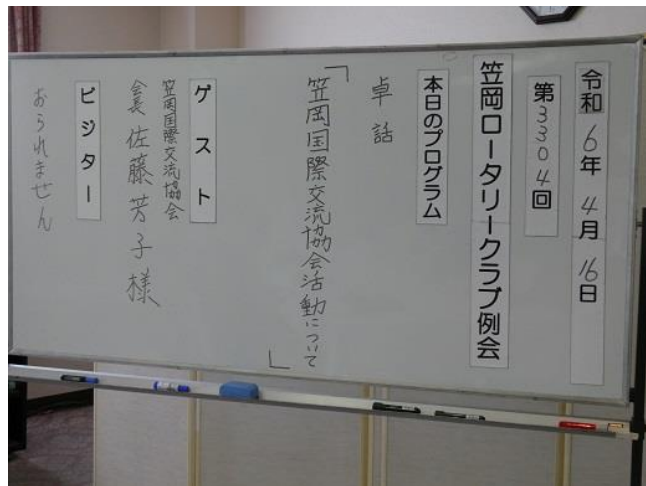 令和6年4月16日
第3304回
笠岡ロータリークラブ例会
本日のプログラム
卓話
「笠岡国際交流協会活動について」
ゲスト
笠岡国際交流協会
会長 佐藤芳子様
ビジター
おられません